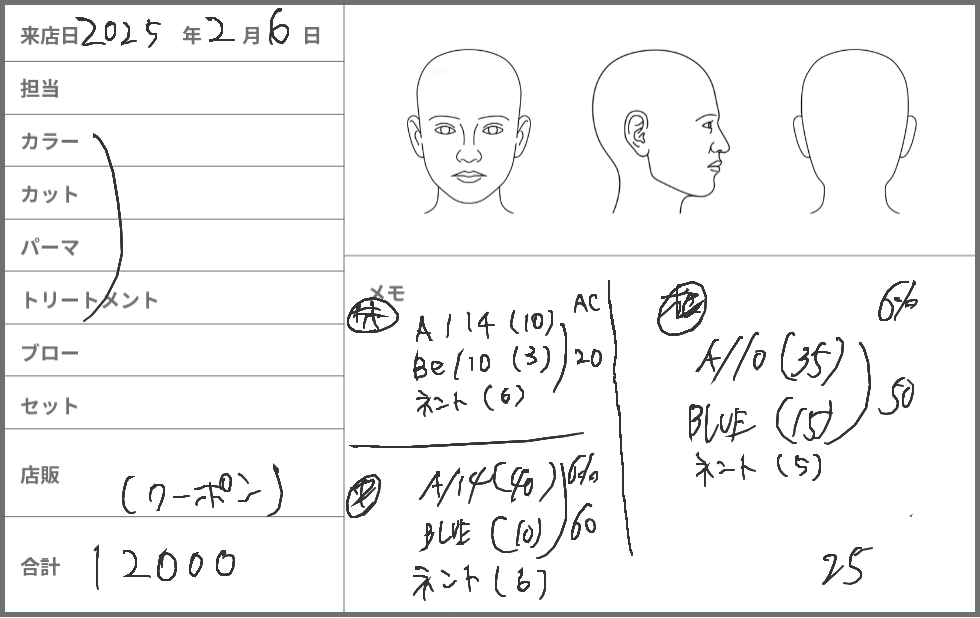 来店日 2025 年 2 月 6 日
担当
カラー
カット
パーマ
トリートメント
ブロー
セット
店販
(クーポン)
合計 12000
メモ
AC
A/14 (10)
Be/10 (3) 20
ネント (6)
A/14 (40) 6%
BLUE (10) 60
ネント (6)
6%
A//0 (35)
BLUE (15) 50
ネント (5)
25